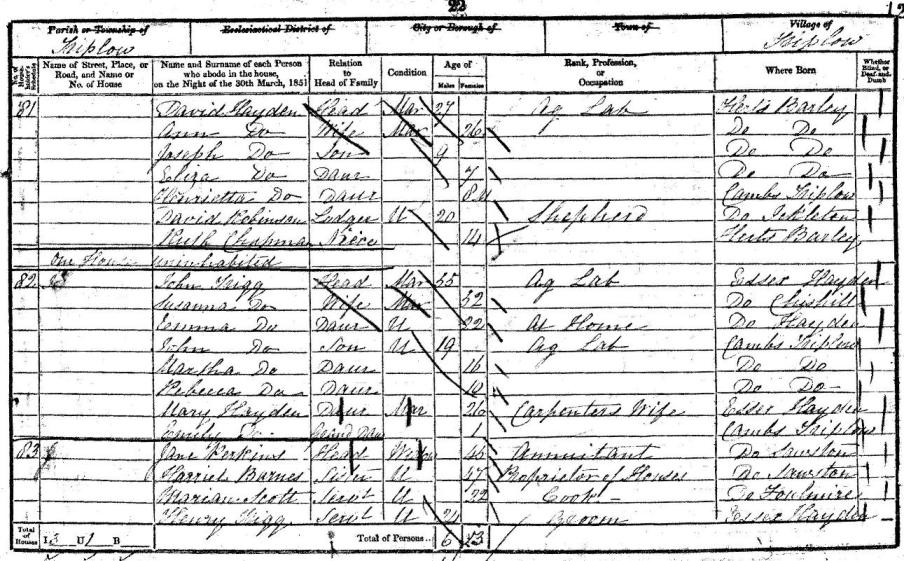 22
12
Parish or Township of Ecclesiastical District of City or Borough of Town of Village of
Triplow Triplow
No. of House- holder's Schedule Name of Street, Place, or Road, and Name or No. of House Name and Surname of each Person who abode in the house, on the Night of the 30th March, 1851 Relation to Head of Family Condition Age of Males Females Rank, Profession, or Occupation Where Born Whether Blind, or Deaf-and-Dumb
81 David Hayden Head Mar 27 Ag Lab Herts Barley
Ann Do Wife Mar 26 Do Do
Joseph Do Son 9 Do Do
Eliza Do Daur 7 Do Do
Henrietta Do Daur 8 M Cambs Triplow
David Robinson Lodger U 20 Shepherd Do Ickleton
Ruth Chapman Niece 14 Herts Barley
One House uninhabited
82 John Trigg Head Mar 55 Ag Lab Essex Hayden
Susanna Do Wife Mar 52 Do Chishill
Emma Do Daur U 22 At Home Do Hayden
John Do Son U 19 Ag Lab Cambs Triplow
Martha Do Daur 16 Do Do
Rebecca Do Daur Do Do
Mary Hayden Daur Mar 26 Carpenters Wife Essex Hayden
Emily Do Grand Daur 1 Cambs Triplow
83 Jane Perkins Head Widow 45 Annuitant Do Sawston
Harriet Barnes Sister U 47 Proprietor of Houses Do Sawston
Marian Scott Servt U 22 Cook Do Foulmire
Henry Trigg Servt U 21 Groom Essex Hayden
Total of Houses I 3 U 1 B Total of Persons 6 13